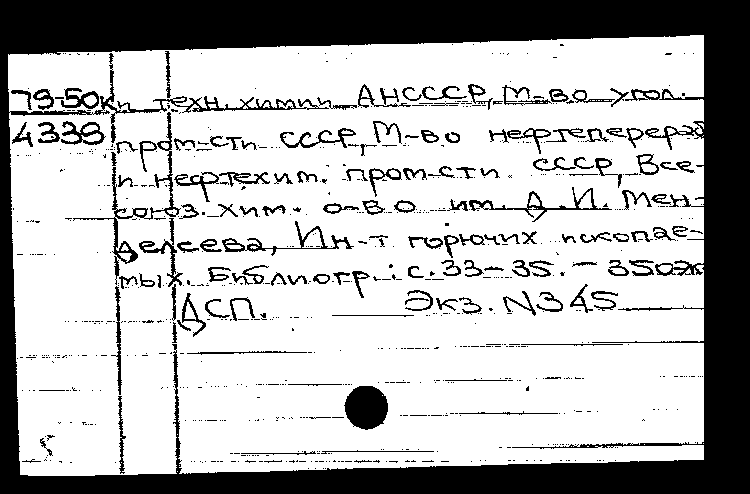 79-50к и техн. химии АНСССР, М-во угол.
4338 пром-сти СССР, М-во нефтеперераб
и нефтехим. пром-сти СССР, Все-
союз. хим. о-во им. Д. И. Мен-
делеева, Ин-т горючих ископае-
мых. Библиогр.: с. 33-35. - 350эк
ДСП. Экз. N345